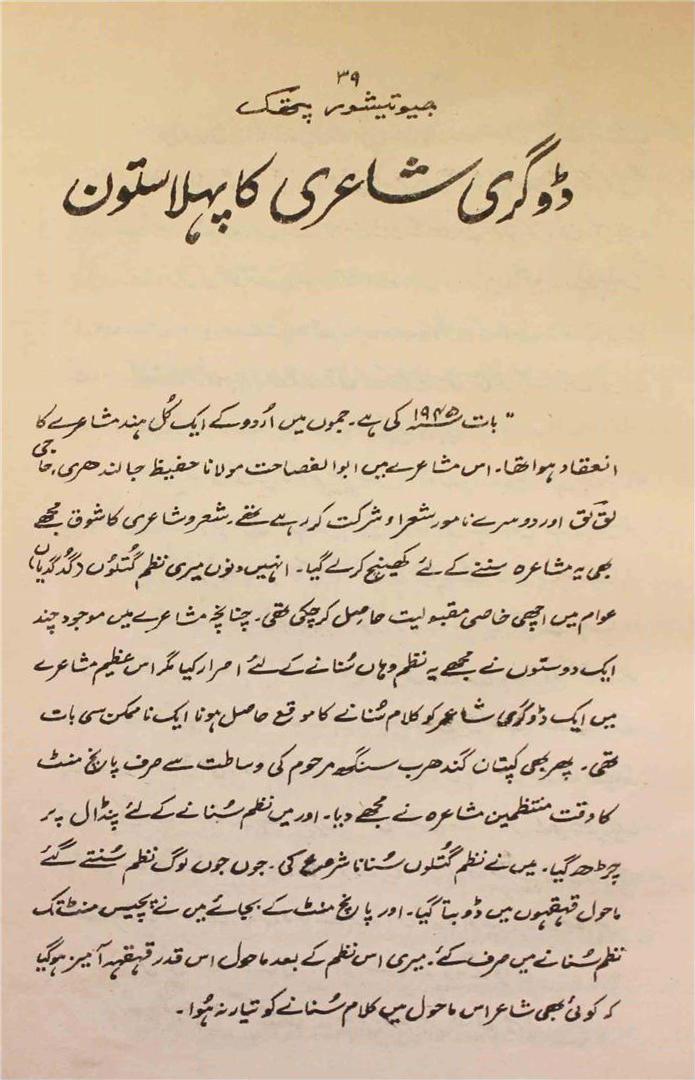 ۳۹
جیوتیشور پتھک
ڈوگری شاعری کا پہلا ستون
" بات ۱۹۴۵؁ کی ہے۔ جموں میں اُردو کے ایک کُل ہند مشاعرے کا
انعقاد ہوا تھا۔ اس مشاعرے میں ابوالفصاحت مولانا حفیظ جالندھری، حاجی
لق لق اور دوسرے نامور شعراء شرکت کر رہے تھے۔ شعر و شاعری کا شوق مجھے
بھی یہ مشاعرہ سننے کے لئے کھینچ کر لے گیا۔ انہیں دنوں میری نظم گُتلُوں (گُدگُدیاں)
عوام میں اچھی خاصی مقبولیت حاصل کر چکی تھی۔ چنانچہ مشاعرے میں موجود چند
ایک دوستوں نے مجھے یہ نظم وہاں سُنانے کے لئے اصرار کیا مگر اس عظیم مشاعرے
میں ایک ڈوگری شاعر کو کلام سُنانے کا موقع حاصل ہونا ایک ناممکن سی بات
تھی۔ پھر بھی کپتان گندھرب سنگھ مرحوم کی وساطت سے صرف پانچ منٹ
کا وقت منتظمین مشاعرہ نے مجھے دیا۔ اور میں نظم سُنانے کے لئے پنڈال پر
چڑھ گیا۔ میں نے نظم گُتلُوں سُنانا شروع کی۔ جوں جوں لوگ نظم سُنتے گئے
ماحول قہقہوں میں ڈوبتا گیا۔ اور پانچ منٹ کے بجائے میں نے پچیس منٹ تک
نظم سُنانے میں صرف کئے۔ میری اس نظم کے بعد ماحول اس قدر قہقہہ آمیز ہو گیا
کہ کوئی بھی شاعر اس ماحول میں کلام سُنانے کو تیار نہ ہُوا۔